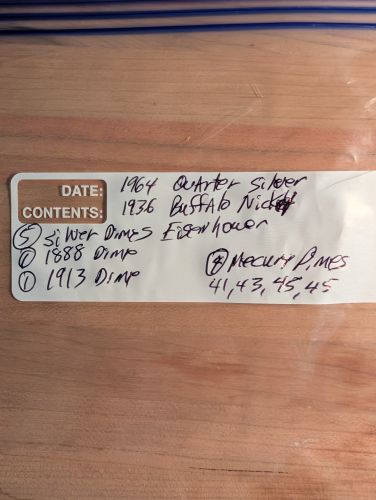 DATE: 1964 Quarter silver
CONTENTS: 1936 Buffalo Nickel
⑤ silver Dimes Eisenhower
① 1888 Dime
① 1913 Dime
④ Mecury Dimes
41, 43, 45, 45